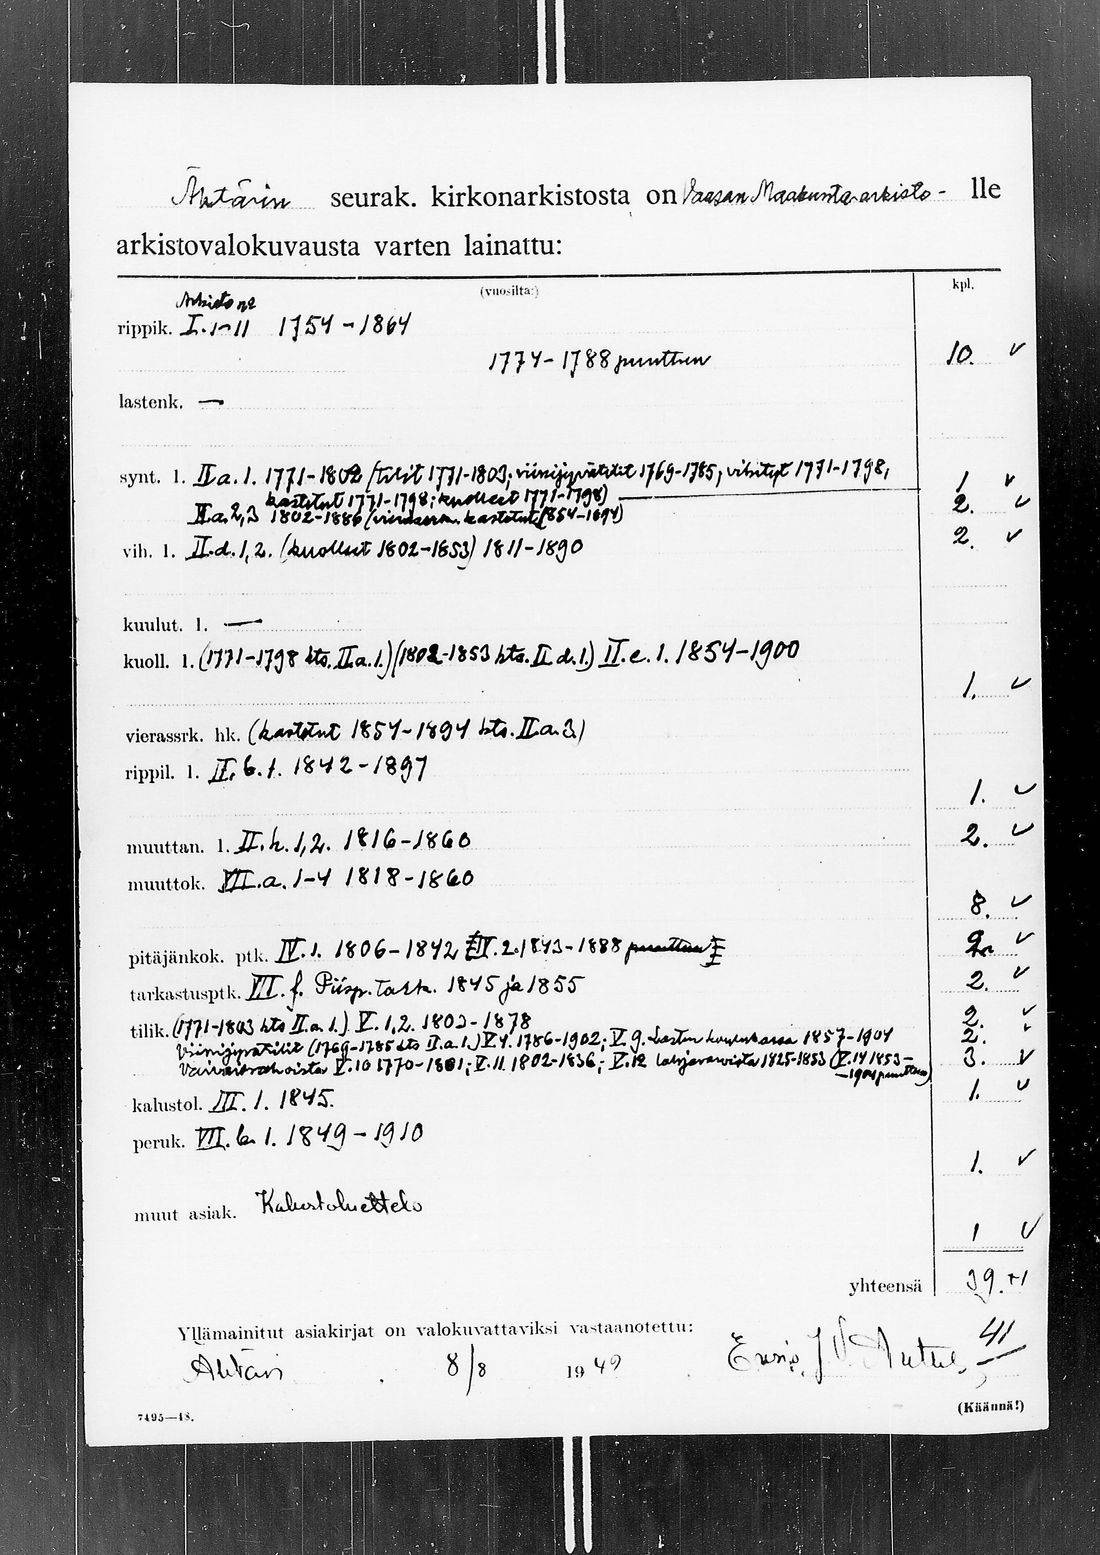 Ähtärin seurak. kirkonarkistosta on Vaasan Maakunta-arkisto - lle
arkistovalokuvausta varten lainattu:
(vuosilta:) kpl.
Arkisto no
rippik. I. 1-11 1754-1864
1774-1788 puuttuu 10. ✓
lastenk. —
synt. l. II a. 1. 1771-1802 (tilit 1771-1803; viinijyvätilit 1769-1785; vihityt 1771-1798, 1 ✓
kastetut 1771-1798; kuolleet 1771-1798)
II a. 2,3 1802-1886 (vierassrk. kastetut 1854-1894) 2. ✓
vih. l. II. d. 1,2. (kuolleet 1802-1853) 1811-1890 2. ✓
kuulut. l. —
kuoll. l. (1771-1798 kts. II a. 1.) (1802-1853 kts. II d. 1.) II. e. 1. 1854-1900
1. ✓
vierassrk. hk. (kastetut 1854-1894 kts. II a. 3)
rippil. l. II. b. 1. 1842-1897
1. ✓
muuttan. l. II. h. 1,2. 1816-1860 2. ✓
muuttok. VII. a. 1-4 1818-1860
8. ✓
pitäjänkok. ptk. IV. 1. 1806-1842 IV. 2. 1843-1888 puuttuu 2. ✓
tarkastusptk. VII. f. Piisp. tark. 1845 ja 1855 2. ✓
tilik. (1771-1803 kts II a. 1.) V. 1,2. 1803-1878 2. ✓
Viinijyvätilit (1769-1785 kts II. a. 1.) V. 4. 1786-1902; V. 9. Lasten 1857-1904 2. ✓
Vaivaisrahoista V. 10 1770-1801; V. 11. 1802-1836; V. 12 1825-1853 (V. 14 1853- 3. ✓
-1904 puuttuu)
kalustol. III. 1. 1845. 1. ✓
peruk. VII. b. 1. 1849-1910
1. ✓
muut asiak. Kalustoluettelo
1 ✓
yhteensä 39. +1
Yllämainitut asiakirjat on valokuvattaviksi vastaanotettu: 41
Ähtäri 8/8 1949
7495—48. (Käännä!)